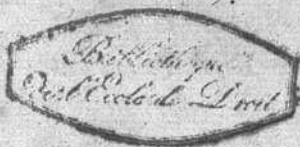 Bibliothèque
de l'École de Droit